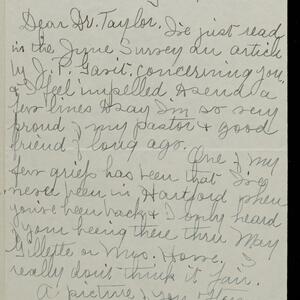 Dear Dr. Taylor. I've just read
in the June Survey an article
by J. P. Gavit, concerning you,
& I feel impelled to send a
few lines to say I'm so very
proud of my pastor & good
friend of long ago.
One of my
few griefs has been that I've
never been in Hartford when
you've been back & I only heard
of your being there thru May
Gillette or Mrs. Howe. I
really don't think it fair.
A picture of you